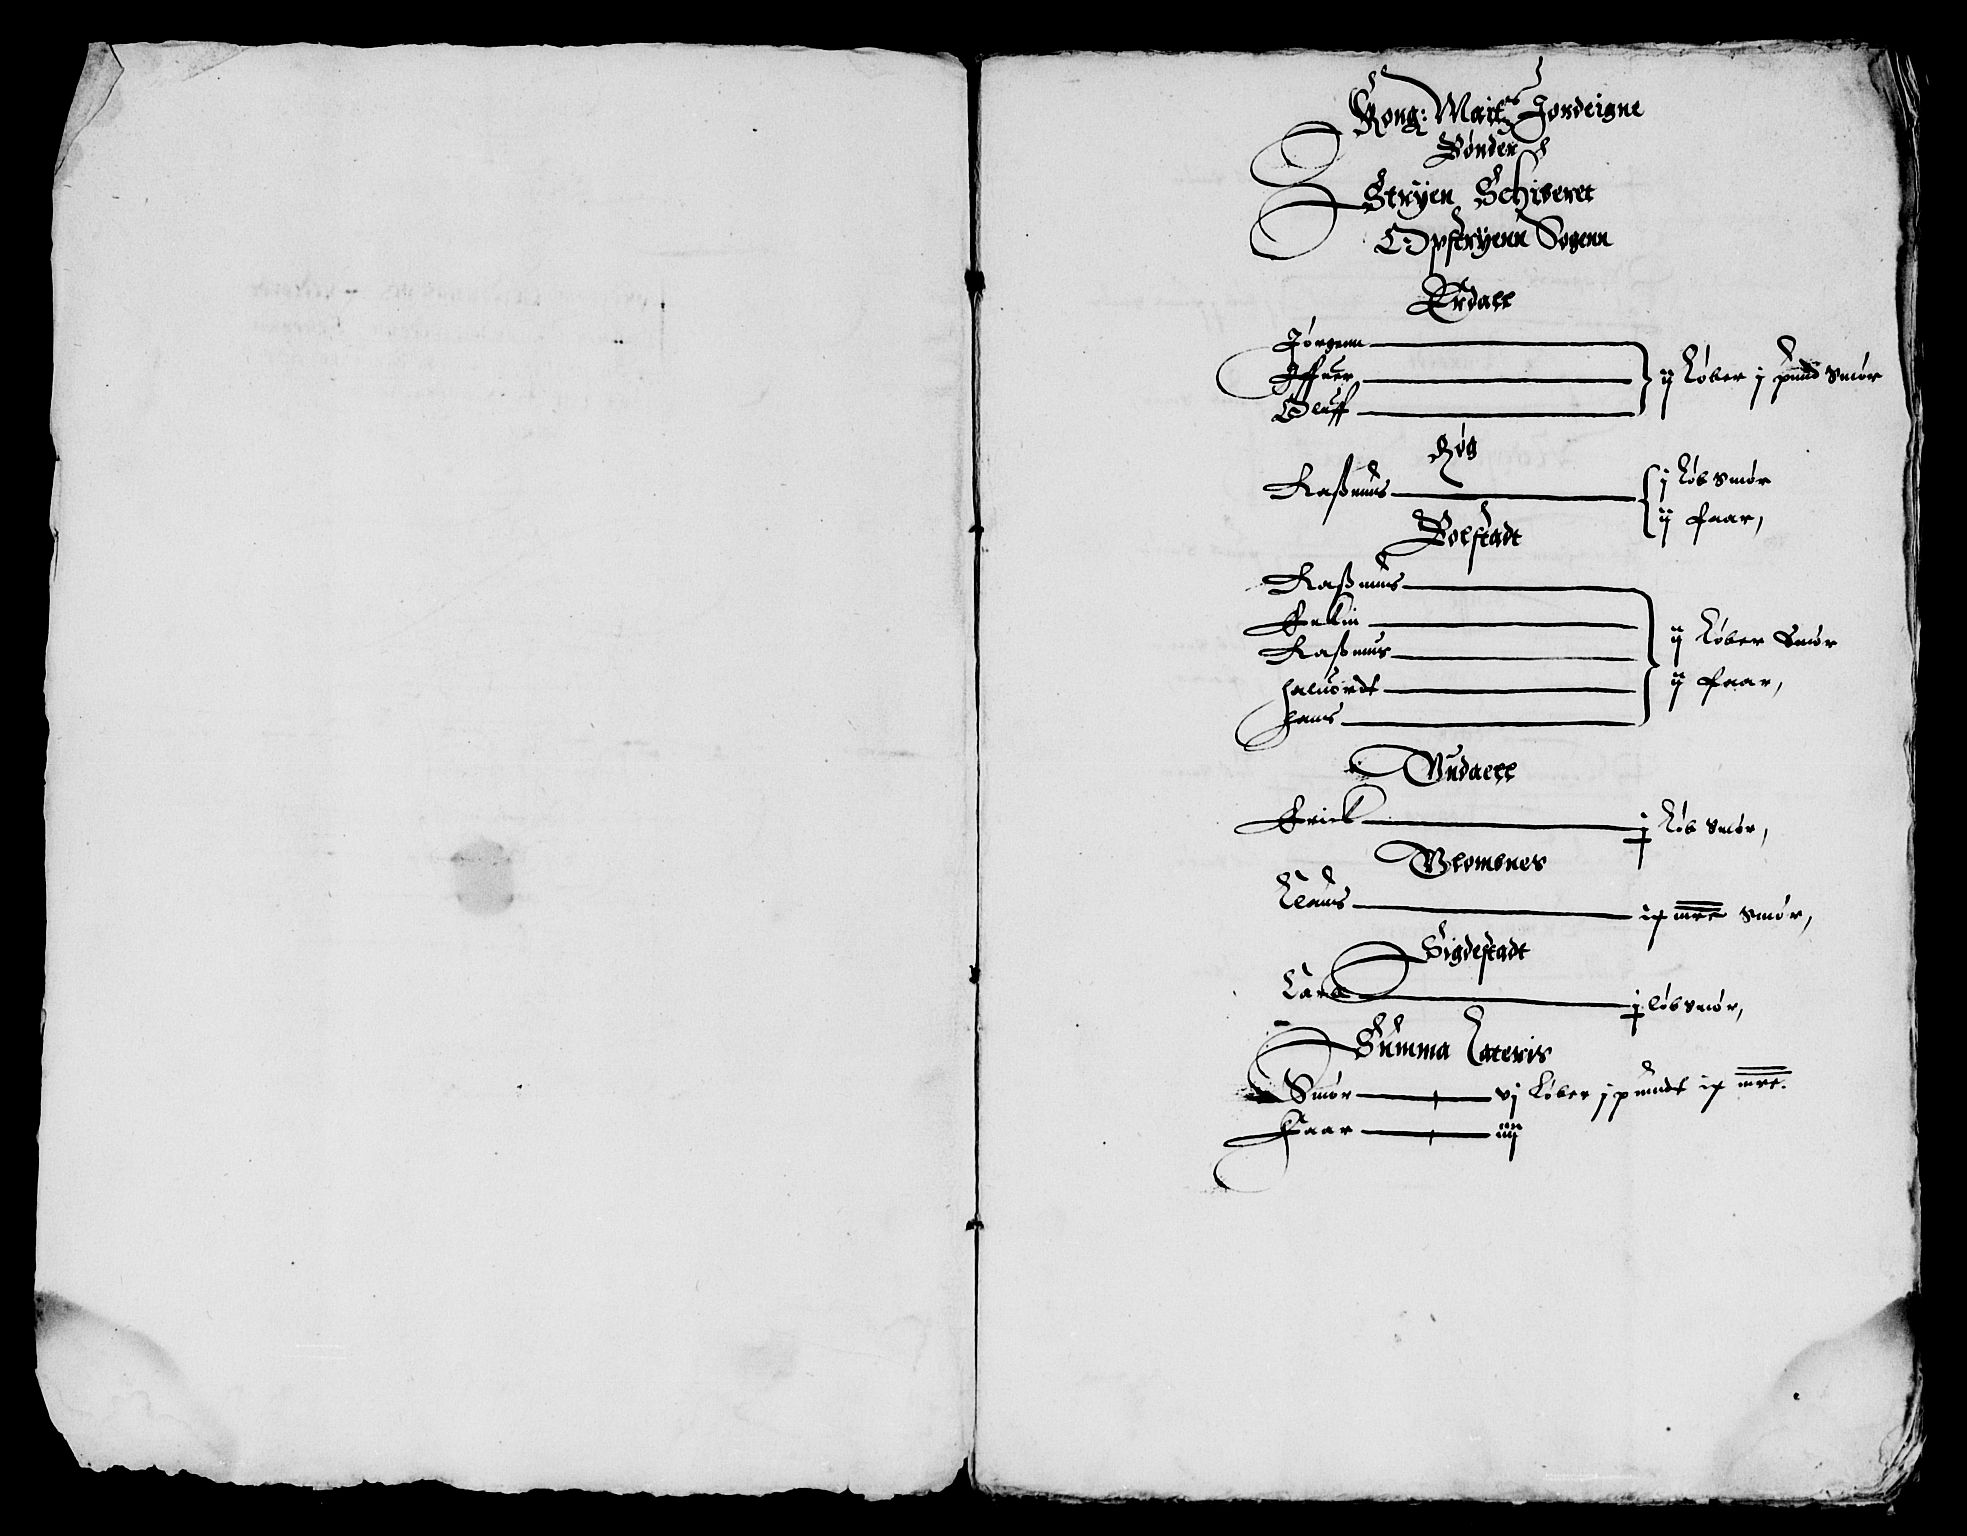 Kong: Maitz Jordeigne
Bønder
Stryen Schiberet
Opstryenn Sogenn
Erdall
Jørgenn
Iffuer
Oluff
ij Løber j pund Smør
Røg
Rasmus
j Løb Smør
ij Faar,
Bolstadt
Rasmus
Rasmus
Haluordt
Hans
ij Løber Smør
ij Faar,
Vndaell
Erick
j Løb Smør,
Blomsnes
Claus
mrc Smør,
Sigdestadt
Lars
j løb smør,
Summa Lateris
Smør vj Løber j pundt mrc.
Faar iiij